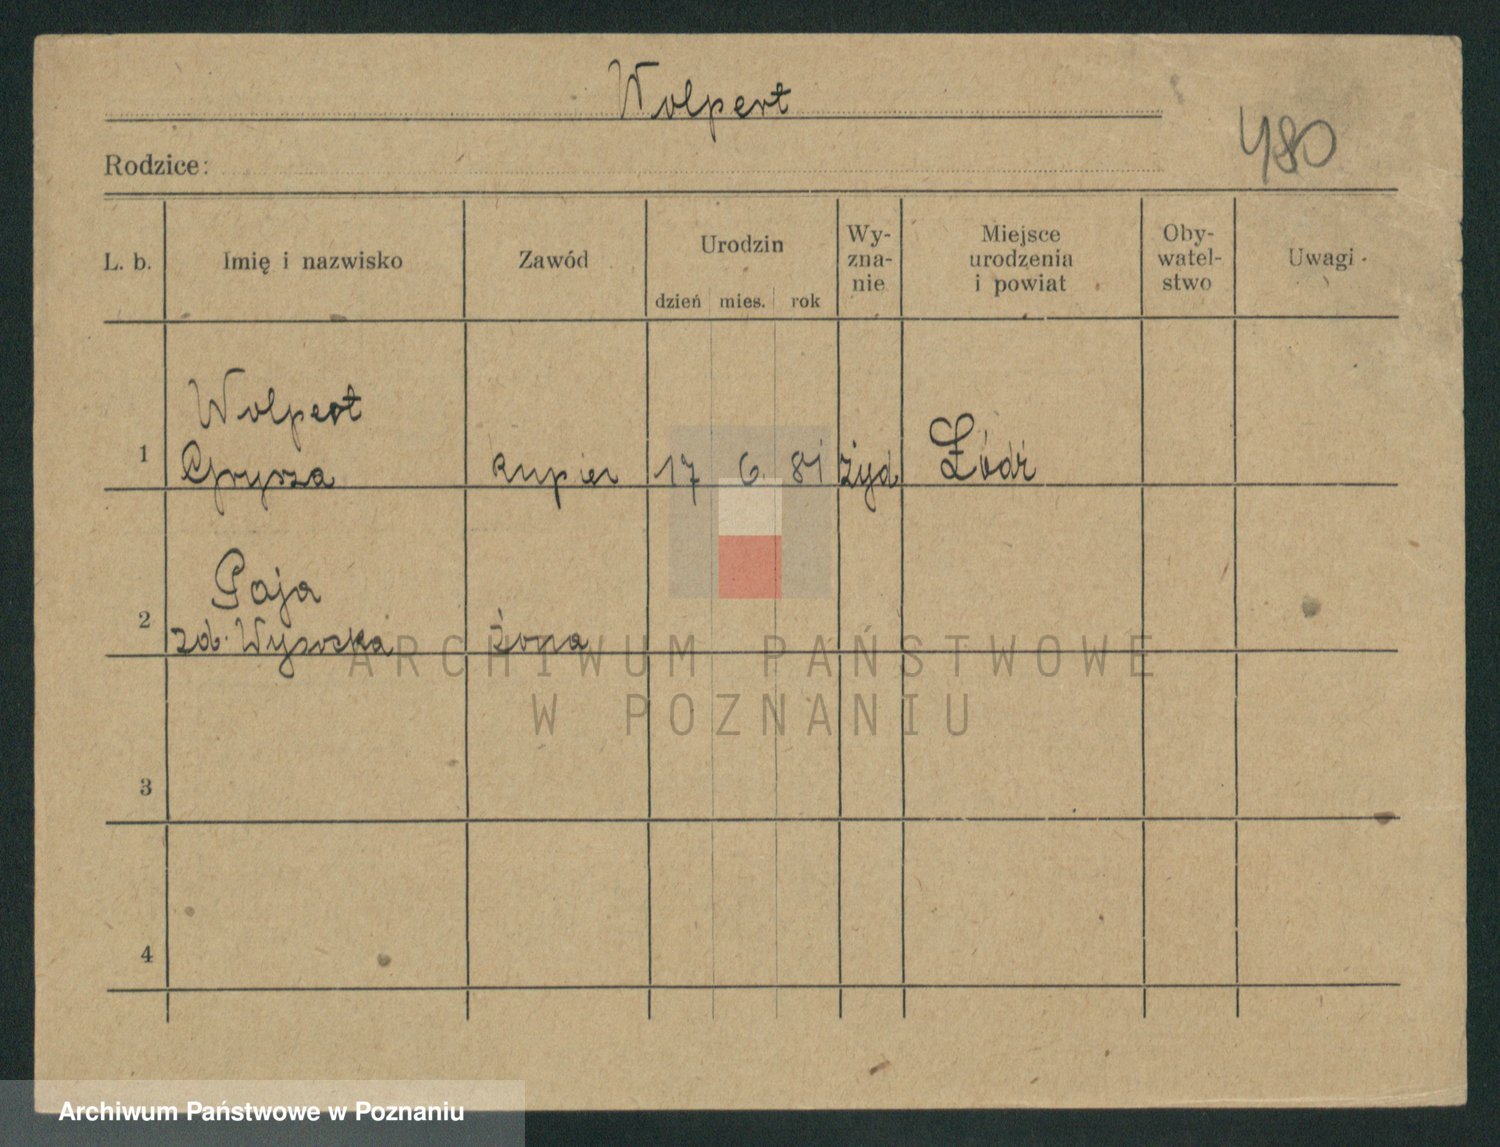 Wolpert
480
Rodzice:
L. b.
Imię i nazwisko
Zawód
Urodzin
dzień mies. rok
Wy-
zna-
nie
Miejsce
urodzenia
i powiat
Oby-
watel-
stwo
Uwagi
Wolpert
1 Grysza kupiec 17 6. 81 żyd Łódź
Paja
2 zd. Wysocka żona
ARCHIWUM PAŃSTWOWE
W POZNANIU
3
4
Archiwum Państwowe w Poznaniu